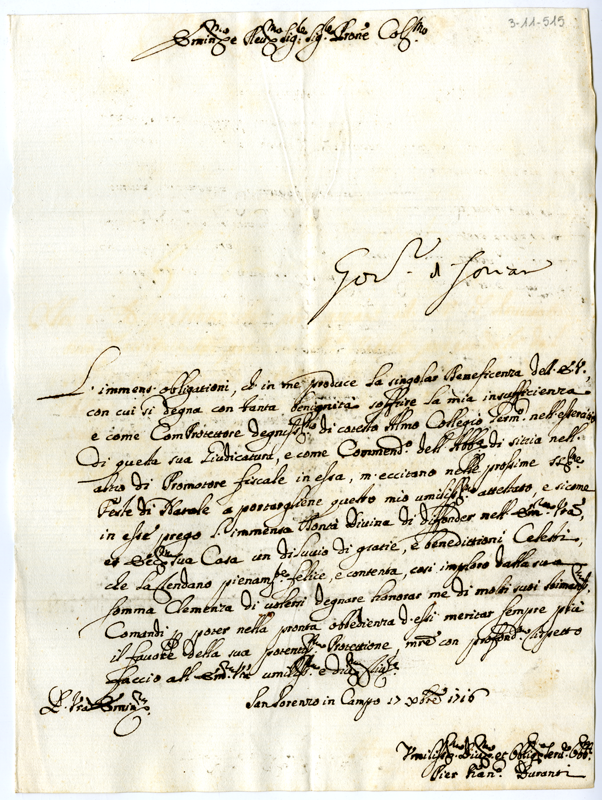 3-11-515
Em.mo e Rev.mo Sig.r Sig.r Prone Col.mo
Gov.r
L'immens' obligationi, ch' in me produce la singolar Beneficenza dell' E.V.,
con cui si degna con tanta benignità soffrire la mia insufficienza
e come ComProtettore degniss.mo di cotesto Almo Collegio nell' esercitio
di questa sua Giudicatura, e come Commend.o dell' Abb.a di sitria nell'
altro di Promotore fiscale in essa, m' eccitano nelle prossime
feste di Natale a portargliene questo mio umiliss.o attestato, e sicome
in esse prego l' immensa Bontà Divina di diffonder nell' Em.za Vra,
et sua Casa un diluvio di gratie, e benedittioni Celesti,
che la rendano pienam.te felice, e contenta, così imploro dalla sua
somma Clemenza di volersi degnare honorar me di molti suoi stimat.mi
Comandi p poter nella pronta obedienza d'essi meritar sempre più
il favore della sua potent.ma Protettione, m.re con profond.o rispetto
faccio all' Em.za Vra umiliss.a e
D. Vra Emin.za
San Lorenzo in Campo 17 Xbre 1716
Umiliss.o Divot.o et Oblig.o Ser.re Obb.o
Pier Fran.o Duranti